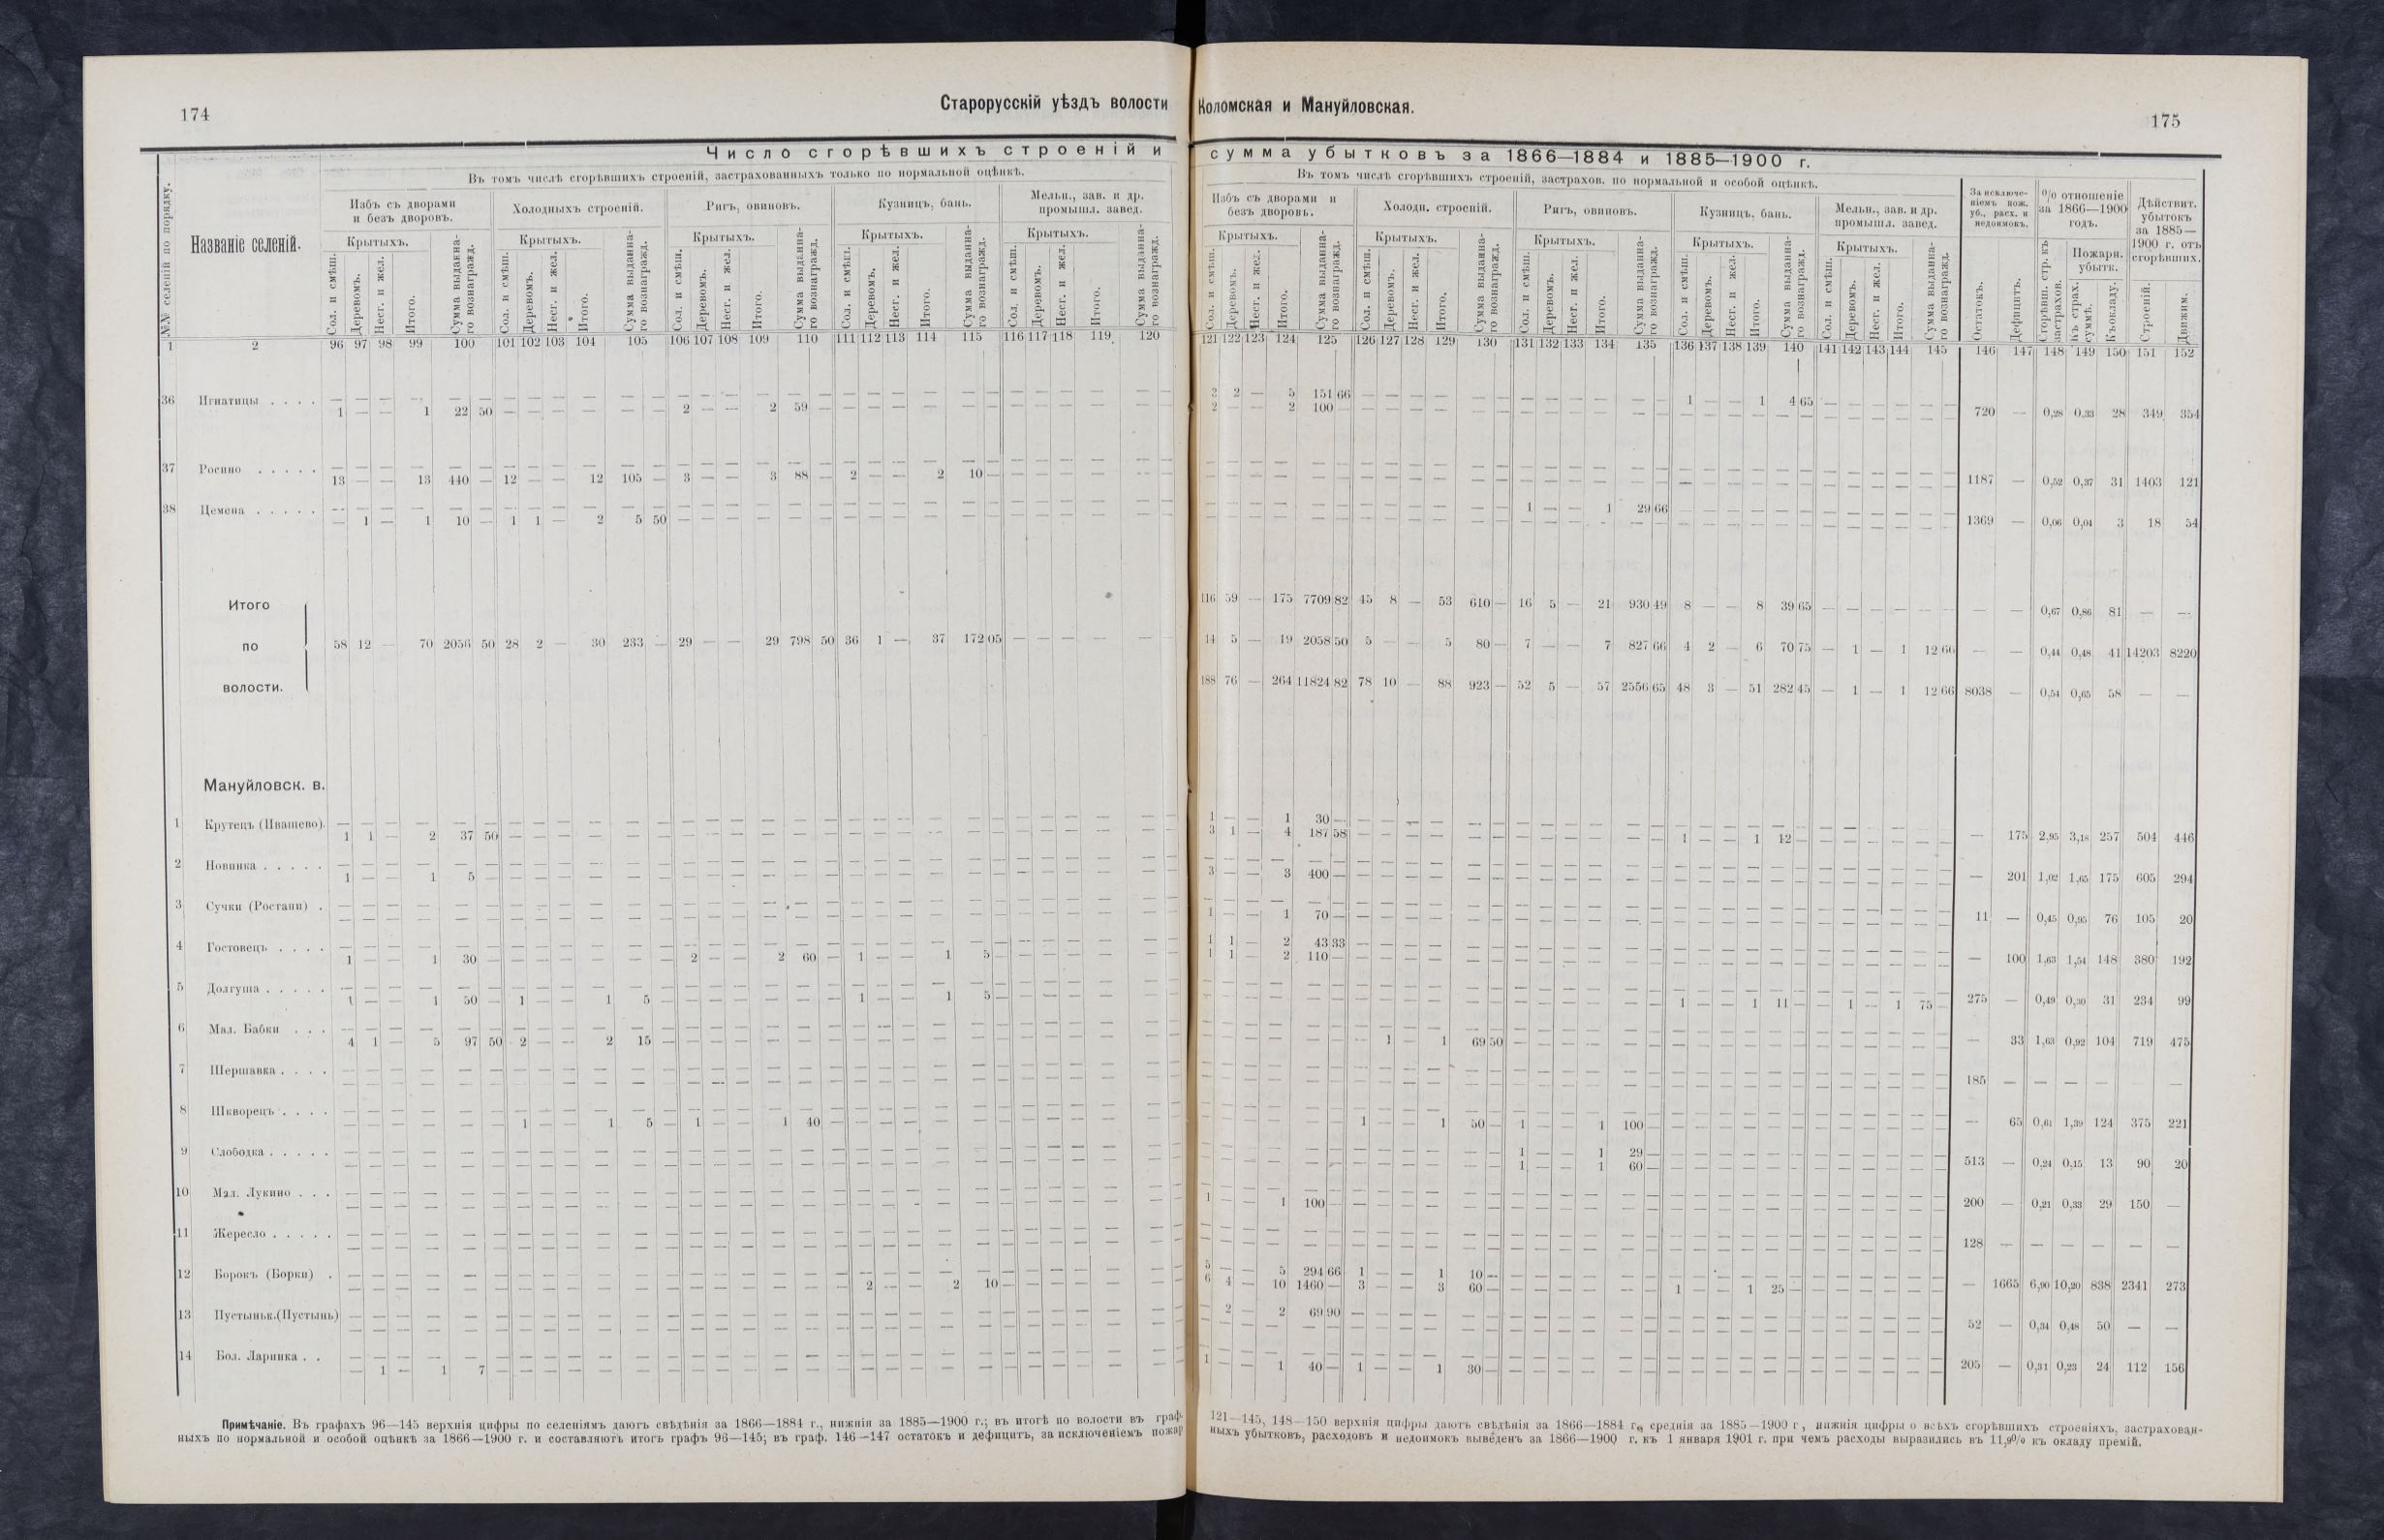 174
Старорусскій уѣздъ волости Коломская и Мануйловская.
175
Число сгорѣвшихъ строеній и сумма убытковъ за 1866—1884 и 1885—1900 г.
№№ селеній по порядку.
Названіе селеній.
Въ томъ числѣ сгорѣвшихъ строеній, застрахованныхъ только по нормальной оцѣнкѣ.
Избъ съ дворами и безъ дворовъ.
Холодныхъ строеній.
Ригъ, овиновъ.
Кузницъ, бань.
Мельн., зав. и др. промышл. завед.
Крытыхъ. Крытыхъ. Крытыхъ. Крытыхъ. Крытыхъ.
Сол. и смѣш. Деревомъ. Несг. и жел. Итого. Сумма выданнаго вознагражд.
Сол. и смѣш. Деревомъ. Несг. и жел. Итого. Сумма выданнаго вознагражд.
Сол. и смѣш. Деревомъ. Несг. и жел. Итого. Сумма выданнаго вознагражд.
Сол. и смѣш. Деревомъ. Несг. и жел. Итого. Сумма выданнаго вознагражд.
Сол. и смѣш. Деревомъ. Несг. и жел. Итого. Сумма выданнаго вознагражд.
Въ томъ числѣ сгорѣвшихъ строеній, застрахов. по нормальной и особой оцѣнкѣ.
Избъ съ дворами и безъ дворовъ.
Холодн. строеній.
Ригъ, овиновъ.
Кузницъ, бань.
Мельн., зав. и др. промышл. завед.
Крытыхъ. Крытыхъ. Крытыхъ. Крытыхъ. Крытыхъ.
Сол. и смѣш. Деревомъ. Несг. и жел. Итого. Сумма выданнаго вознагражд.
Сол. и смѣш. Деревомъ. Несг. и жел. Итого. Сумма выданнаго вознагражд.
Сол. и смѣш. Деревомъ. Несг. и жел. Итого. Сумма выданнаго вознагражд.
Сол. и смѣш. Деревомъ. Несг. и жел. Итого. Сумма выданнаго вознагражд.
Сол. и смѣш. Деревомъ. Несг. и жел. Итого. Сумма выданнаго вознагражд.
За исключеніемъ пож. уб., расх. и недоимокъ.
Остатокъ. Дефицитъ.
% отношеніе за 1866—1900 годъ.
Сгорѣвш. стр. къ застрахов.
Пожарн. убытк.
Къ страх. суммѣ. Къ окладу.
Дѣйствит. убытокъ за 1885—1900 г. отъ сгорѣвших.
Строеній. Движим.
1 2 96 97 98 99 100 101 102 103 104 105 106 107 108 109 110 111 112 113 114 115 116 117 118 119 120 121 122 123 124 125 126 127 128 129 130 131 132 133 134 135 136 137 138 139 140 141 142 143 144 145 146 147 148 149 150 151 152
36 Игнатицы . . . . — — — — — — — — — — — — — — — — — — — — 3 2 — 5 151 66 — — — — — — — — — — 1 — — 1 4 65 — — — — —
1 — — 1 22 50 — — — — — 2 — — 2 59 — — — — — — — — — — 2 — — 2 100 — — — — — — — — — — — — — — — — — — — — — 720 — 0,28 0,33 28 349 354
37 Росино . . . . .
13 — — 13 440 — 12 — — 12 105 — 3 — — 3 88 — 2 — — 2 10 — — — — — — 1187 — 0,52 0,37 31 1403 121
38 Цемена . . . . . 1 — — 1 29 66
— 1 — 1 10 — 1 1 — 2 5 50 — — — — — 1369 — 0,06 0,04 3 18 54
Итого 116 59 — 175 7709 82 45 8 — 53 610 — 16 5 — 21 930 49 8 — — 8 39 65 — — — — — — — 0,67 0,86 81 — —
по 58 12 — 70 2056 50 28 2 — 30 233 — 29 — — 29 798 50 36 1 — 37 172 05 — — — — — 14 5 — 19 2058 50 5 — — 5 80 — 7 — — 7 827 66 4 2 — 6 70 75 — 1 — 1 12 66 — — 0,44 0,48 41 14203 8220
волости. 188 76 — 264 11824 82 78 10 — 88 923 — 52 5 — 57 2556 65 48 3 — 51 282 45 — 1 — 1 12 66 8038 — 0,54 0,65 58 — —
Мануйловск. в.
1 Крутецъ (Ивашево). 1 — — 1 30 —
1 1 — 2 37 50 — — — — — 3 1 — 4 187 58 — — — — — 1 — — 1 12 — — — — — — — 175 2,95 3,18 257 504 446
2 Новинка . . . . .
1 — — 1 5 — — — — — 3 — — 3 400 — — — — — — — 201 1,02 1,65 175 605 294
3 Сучки (Ростани) .
— — — — — 1 — — 1 70 — — — — — — 11 — 0,45 0,95 76 105 20
4 Гостовецъ . . . . 1 1 — 2 43 33
1 — — 1 30 — — — — — — 2 — — 2 60 — 1 — — 1 5 — — — — — — 1 1 — 2 110 — — — — — — — 100 1,63 1,54 148 380 192
5 Долгуша . . . . .
1 — — 1 50 — 1 — — 1 5 — — — — — — 1 — — 1 5 — — — — — — 1 — — 1 11 — — 1 — 1 75 — 275 — 0,49 0,30 31 234 99
6 Мал. Бабки . . .
4 1 — 5 97 50 2 — — 2 15 — — — — — — — 1 — 1 69 50 — — — — — — 33 1,63 0,92 104 719 475
7 Шершавка . . . .
— — — — — 185 — — — — — —
8 Шкворецъ . . . .
— — — — — 1 — — 1 5 — 1 — — 1 40 — — — — — — 1 — — 1 50 — 1 — — 1 100 — — — — — — — 65 0,61 1,39 124 375 221
9 Слободка . . . . . 1 — — 1 29 —
— — — — — 1 — — 1 60 — 513 — 0,24 0,15 13 90 20
10 Мал. Лукино . . .
— — — — — 1 — — 1 100 — 200 — 0,21 0,33 29 150 —
11 Жересло . . . . .
— — — — — 128 — — — — — —
12 Борокъ (Борки) . 5 — — 5 294 66 1 — — 1 10 —
— — — — — 2 — — 2 10 — — — — — — 6 4 — 10 1460 — 3 — — 3 60 — — — — — — 1 — — 1 25 — — — — — — — 1665 6,90 10,20 838 2341 273
13 Пустыньк.(Пустынь) — 2 — 2 69 90
— — — — — 52 — 0,34 0,48 50 — —
14 Бол. Ларинка . .
— 1 — 1 7 — — — — — — 1 — — 1 40 — 1 — — 1 30 — — — — — — 205 — 0,31 0,23 24 112 156
Примѣчаніе. Въ графахъ 96—145 верхнія цифры по селеніямъ даютъ свѣдѣнія за 1866—1884 г., нижнія за 1885—1900 г.; въ итогѣ по волости въ граф. 121—145, 148—150 верхнія цифры даютъ свѣдѣнія за 1866—1884 г., среднія за 1885—1900 г, нижнія цифры о всѣхъ сгорѣвшихъ строеніяхъ, застрахован-
ныхъ по нормальной и особой оцѣнкѣ за 1866—1900 г. и составляютъ итогъ графъ 96—145; въ граф. 146—147 остатокъ и дефицитъ, за исключеніемъ пожарныхъ убытковъ, расходовъ и недоимокъ выведенъ за 1866—1900 г. къ 1 января 1901 г. при чемъ расходы выразились въ 11,9% къ окладу премій.